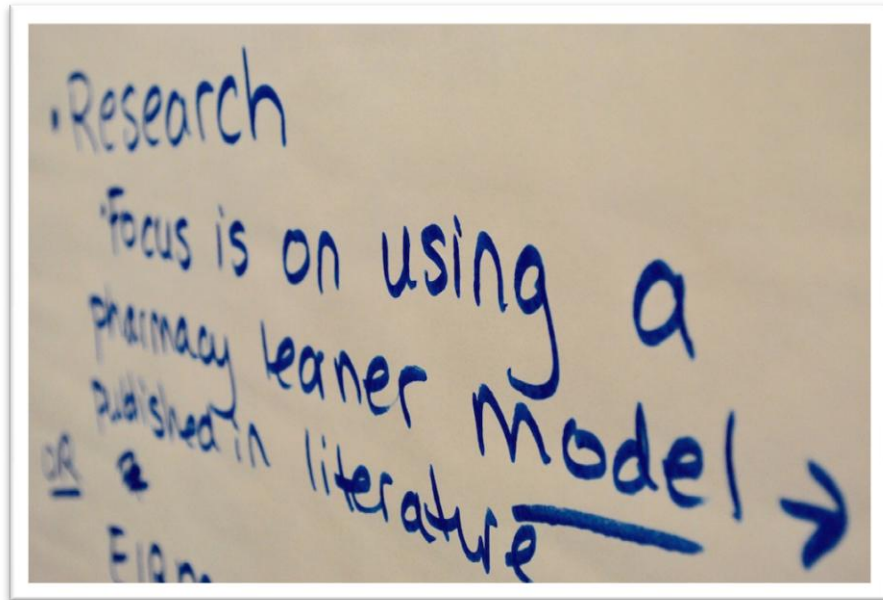 • Research
• Focus is on using a
pharmacy leaner model →
published in literature
OR